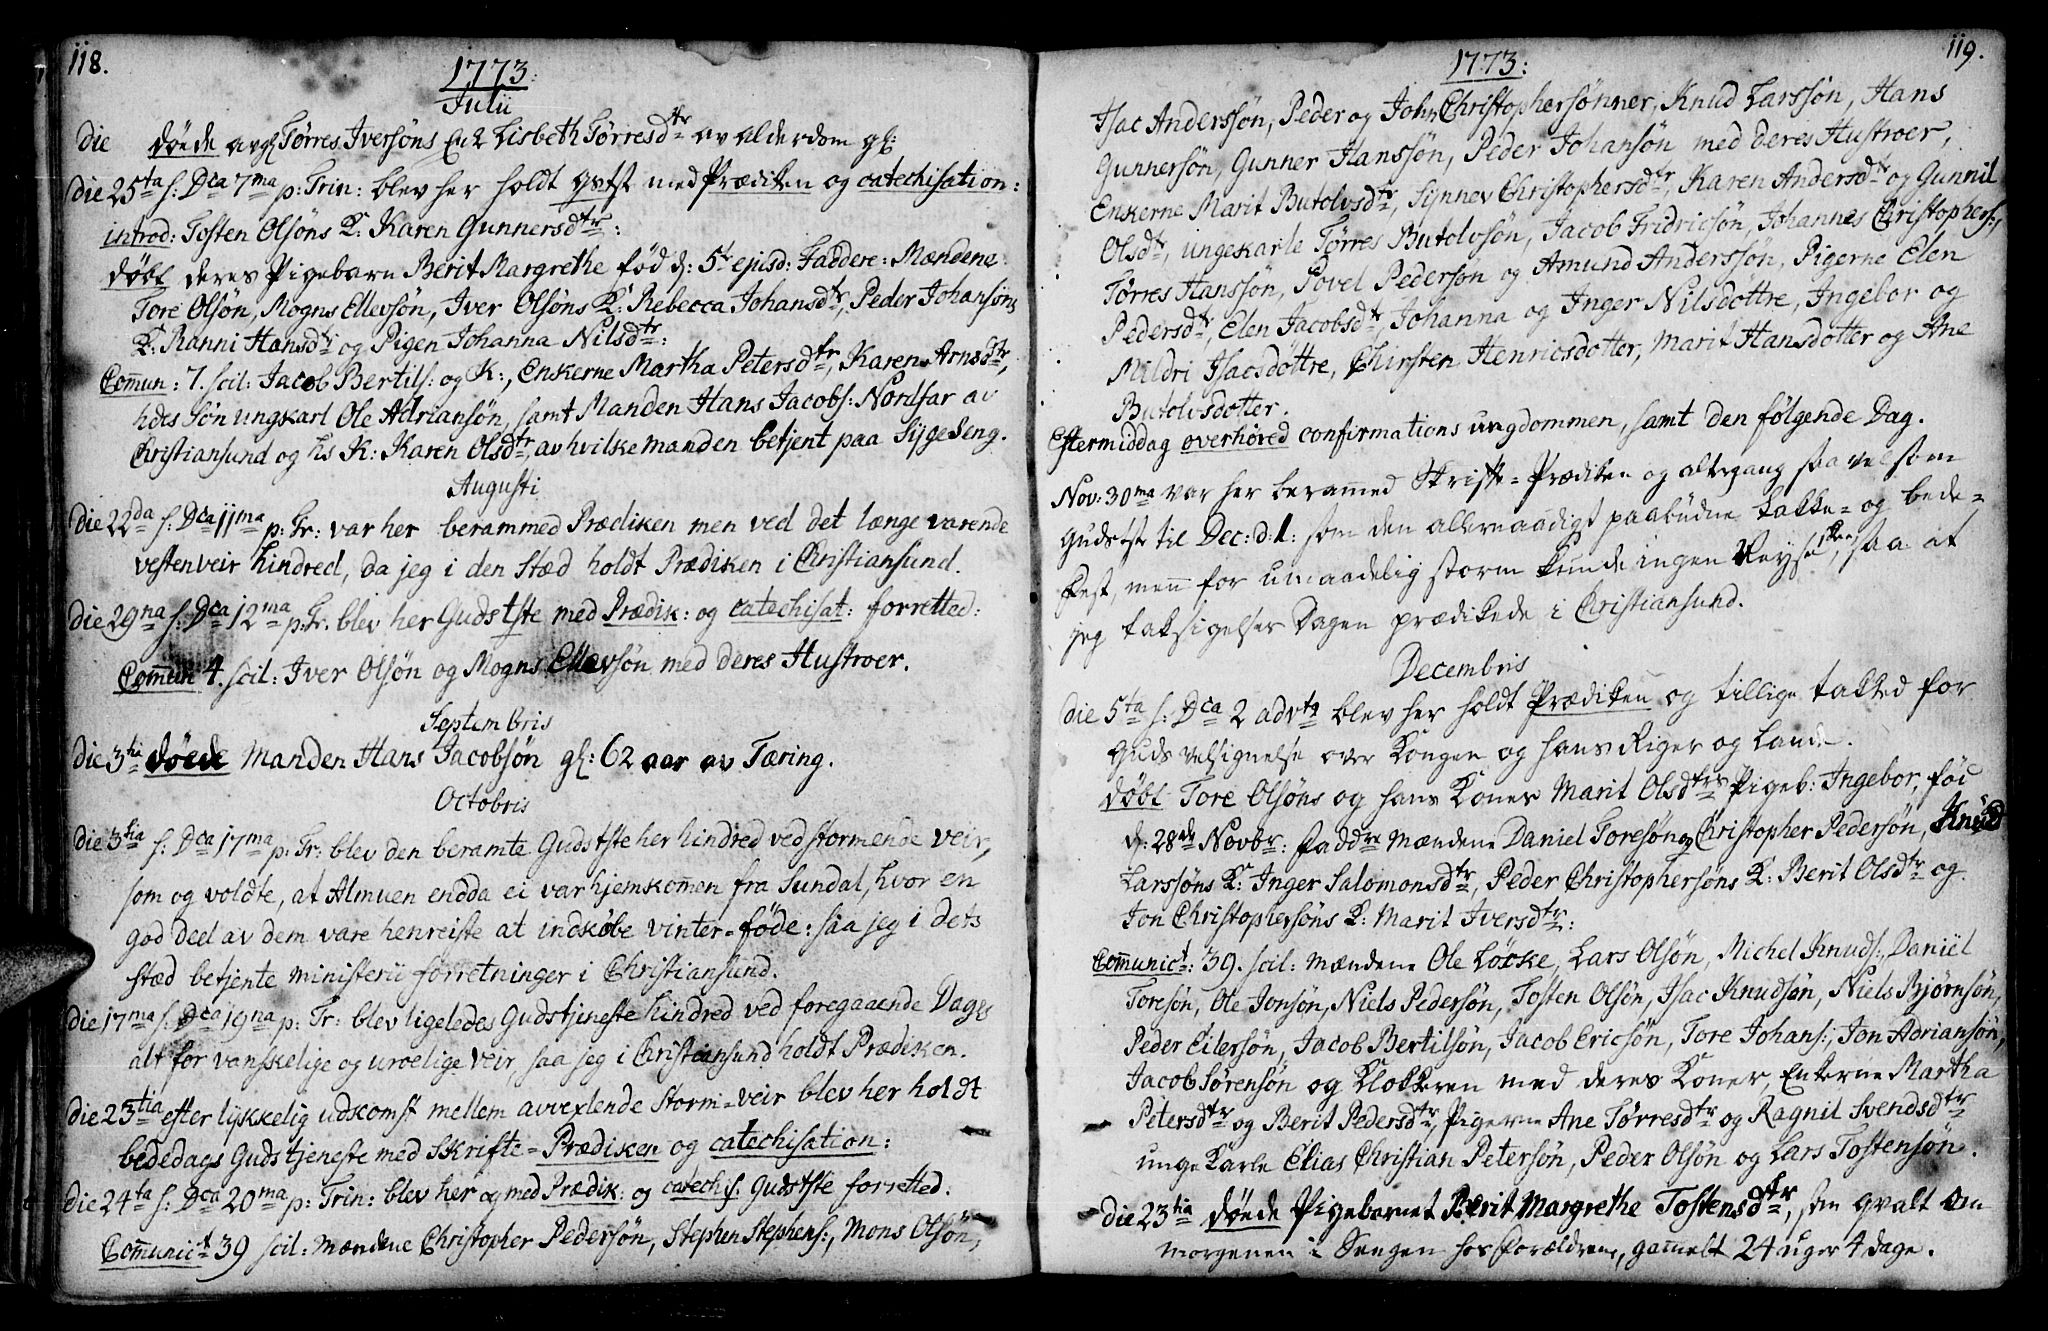 118.
1773:
Julii
die døede avgl Tørres Iversøns Enke Lisbeth Tørresdtr av alderdom gl:
die 25ta s: Dca 7ma p: Trin: blev her holdt gstst med Prædiken og catechisation:
introd: Tosten Olsøns K: Karen Gunnersdtr:
døbt deres Pigebarn Berit Margrethe fød d: 5t ejusd: Faddere: Mændene
Tore Olsøn, Mogns Ellevsøn, Iver Olsøns K: Rebecca Johansdtr, Peder Johansøns
K: Ranni Hansdtr og Pigen Johanna Nilsdtr:
Com̄un: 7. scil: Jacob Bertils: og K:, Enkerne Martha Petersdtr, Karen Arnsdtr,
hdes søn ungkarl Ole Adriansøn, samt Manden Hans Jacobs: Nordfar av
Christiansund og hs K: Karen Olsdtr, av hvilke manden betjent paa Sygeseng.
Augusti
die 22da s: Dca 11ma p: Tr: var her beram̄ed Prædiken men ved det længe varende
vestenveir hindred, da jeg i den Stæd holdt Prædiken i Christiansund.
die 29na s: Dca 12ma p: Tr. blev her Gudstste med Prædik: og catechisat: forretted:
Com̄un 4. scil: Iver Olsøn og Mogns Ellevsøn med deres Hustroer.
Septembris
die 3tia døede Manden Hans Jacobsøn gl: 62 aar av Tæring.
Octobris
die 3tia s: Dca 17ma p: Tr: blev den beramte Gudstste her hindred ved stormende veir,
som og voldte, at Almuen endda ei var hjemkom̄en fra Sundal, hvor en
god deel av dem vare henreiste at indkøbe vinter-føde: saa jeg i dets
stæd betjente ministerii forretninger i Christiansund.
die 17ma s: Dca 19na p: Tr: blev ligeledes Gudstjeneste hindred ved foregaaende Dages
alt for vanskelige og uroelige veir, saa jeg i Christiansund holdt Prædiken.
die 23tia efter lykkelig udkomst mellem avvexlende Storm-veir blev her holdt
bededags Gudstjeneste med Skrifte-Prædiken og catechisation:
die 24ta s: Dca 20ma p: Trin: blev her og med Prædik: og catechis. Gudstste forretted.
Com̄unict 39 scil: Mændene Christopher Pedersøn, Stephen Stephens:, Mons Olsøn,
119.
1773:
Isac Anderssøn, Peder og John Christophersønner, Knud Larssøn, Hans
Gunnersøn, Gunner Hanssøn, Peder Johansøn med deres Hustroer,
Enkerne Marit Butolvsdtr, Synnev Christophersdtr, Karen Andersdtr og Gunnil
Olsdtr, ungekarle Tørres Butolvsøn, Jacob Fridricsøn, Johannes Christophers:,
Tørres Hanssøn, Povel Pedersøn og Amund Anderssøn, Pigerne Elen
Pedersdtr, Elen Jacobsdtr, Johanna og Inger Nilsdottre, Ingebor og
Mildri Isacsdøttre, Chirsten Henricsdotter, Marit Hansdotter og Ane
Butolvsdotter.
Eftermiddag overhøred confirmations ungdommen, samt den følgende Dag.
Nov: 30ma var her beram̄ed Skrifte-Prædiken og altergang saavelsom
Gudstst til Dec: d: 1: som den allernaadigst paabudne takke- og bede-
Fest, men̄ for umaadelig storm kunde ingen Reyse skee, saa at
jeg taksigelses Dagen prædikede i Christiansund.
Decembris
die 5ta s: Dca 2 advts blev her holdt Prædiken og tillige takked for
Guds velsignelse over Kongen og hans Riger og Lande.
døbt Tore Olsøns og hans Kones Marit Olsdtrs Pigeb: Ingebor, fød
d: 28de Novbr: Faddre Mændene Daniel Toresøn og Christopher Pedersøn, Knud
Larssøns K: Inger Salomonsdtr, Peder Christophersøns K: Berit Olsdtr og
Jon Christophersøns K: Marit Iversdtr:
Com̄unict: 39. scil: Mændene Ole Løcke, Lars Olsøn, Michel Knuds:, Daniel
Toresøn, Ole Jonsøn, Niels Pedersøn, Tosten Olsøn, Isac Knudsøn, Niels Bjørnsøn,
Peder Eilersøn, Jacob Bertilsøn, Jacob Ericsøn, Tore Johans:, Jon Adriansøn,
Jacob Sørensøn og Klokkeren med deres Koner, Enkerne Martha
Petersdtr og Berit Pedersdtr, Pigerne Ane Tørresdtr og Ragnil Svendsdtr
unge Karle Elias Christian Petersøn, Peder Olsøn og Lars Tostensøn.
die 23tia døede Pigebarnet Berit Margrethe Tostensdtr, som qvalt om
morgenen i Sengen hos forældrene, gam̄elt 24 uger 4 dage.